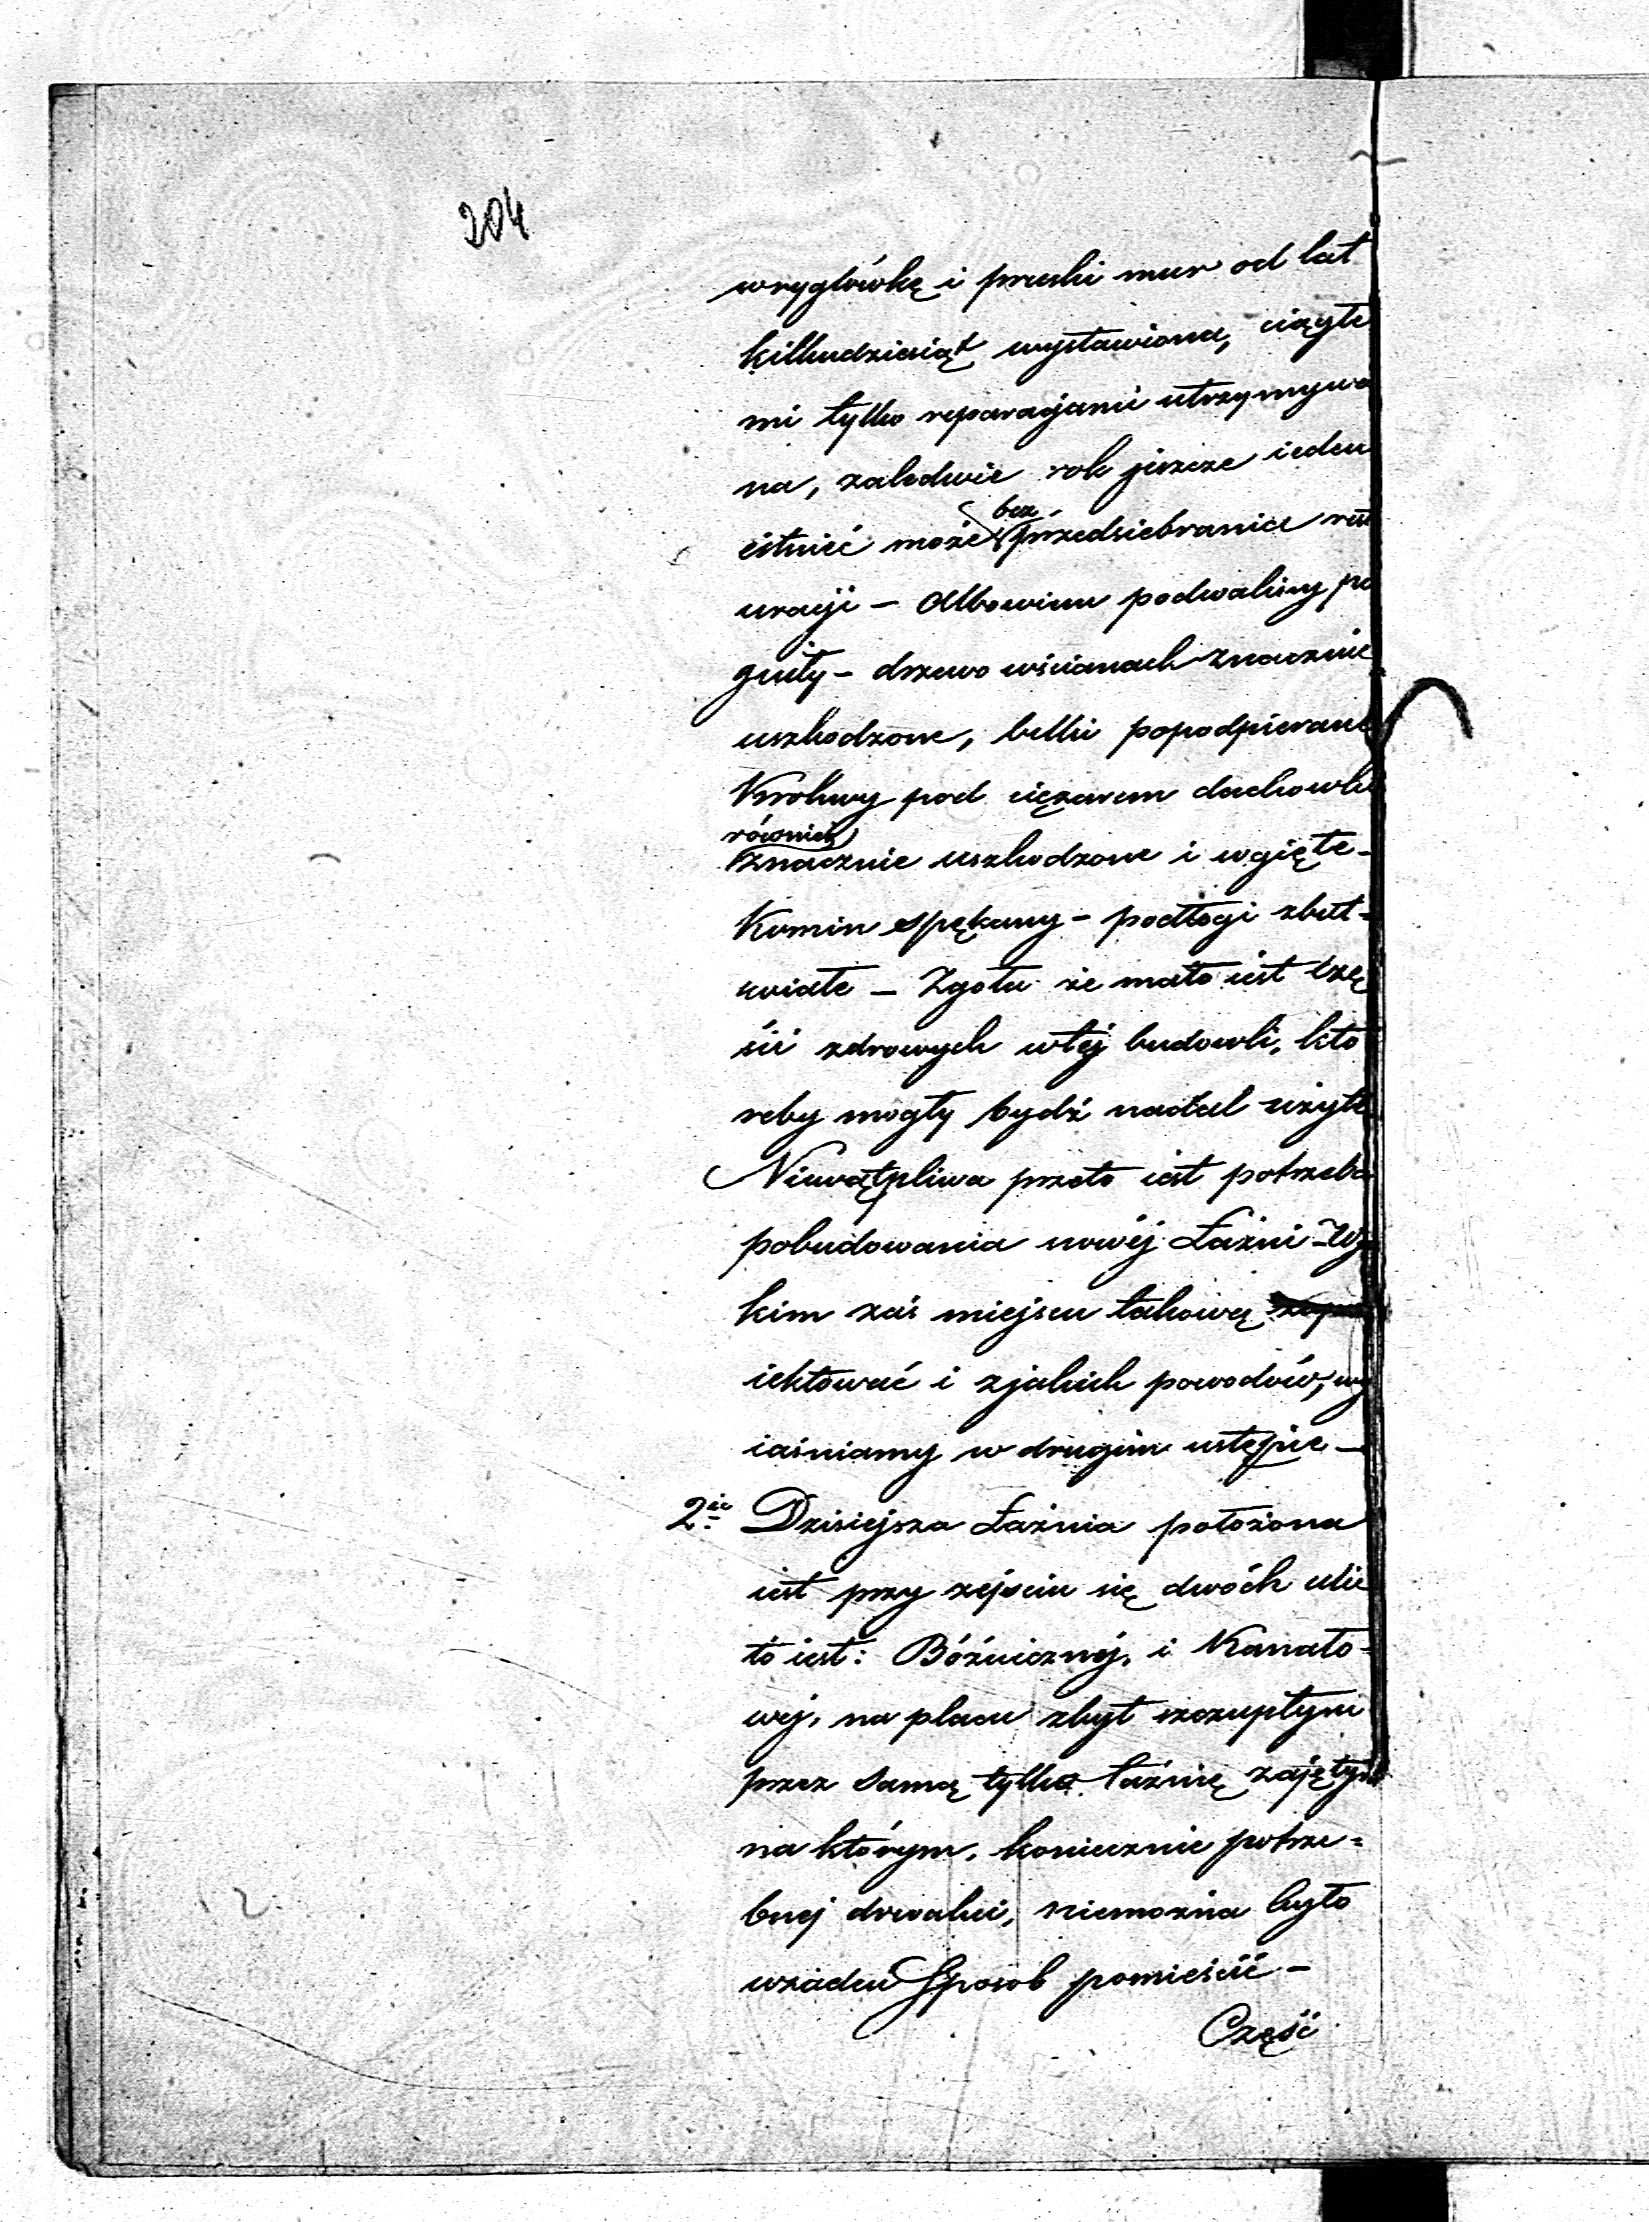 204
wryglówkę i pruski mur od lat
kilkudziesiąt wystawiona, ciągłe
mi tylko reparacjami utrzymywa
na, zaledwie rok jeszcze ieden
istnieć może bez przedsiebrania rest
uracji – Albowiem podwaliny po
gniły – drzewo wścianach znacznie
uszkodzone, belki popodpierane
Krokwy pod ciężarem dachowki
również
znacznie uszkodzone i wgięte –
Komin spękany – podłogi zbut-
wiałe – Zgoła że mało iest czę
ści zdrowych wtéj budowli, któ
reby mogły bydź nadal użyte
Niewątpliwa przeto iest potrzeba
pobudowania nowéj Łaźni – W ja
kim zaś miejscu takową
iektować i zjakich powodów, wy
iaśniamy w drugim ustępie –
2ie Dzisiejsza Łaźnia położona
iest przy zejściu się dwóch ulic
to iest: Bóżnicznéj, i Kanało-
wej, na placu zbyt szczupłym
przez samą tylko łaźnię zajętym
na którym, koniecznie potrze=
bnej drwalki, niemożna było
wżaden sposob pomieścić –
Część